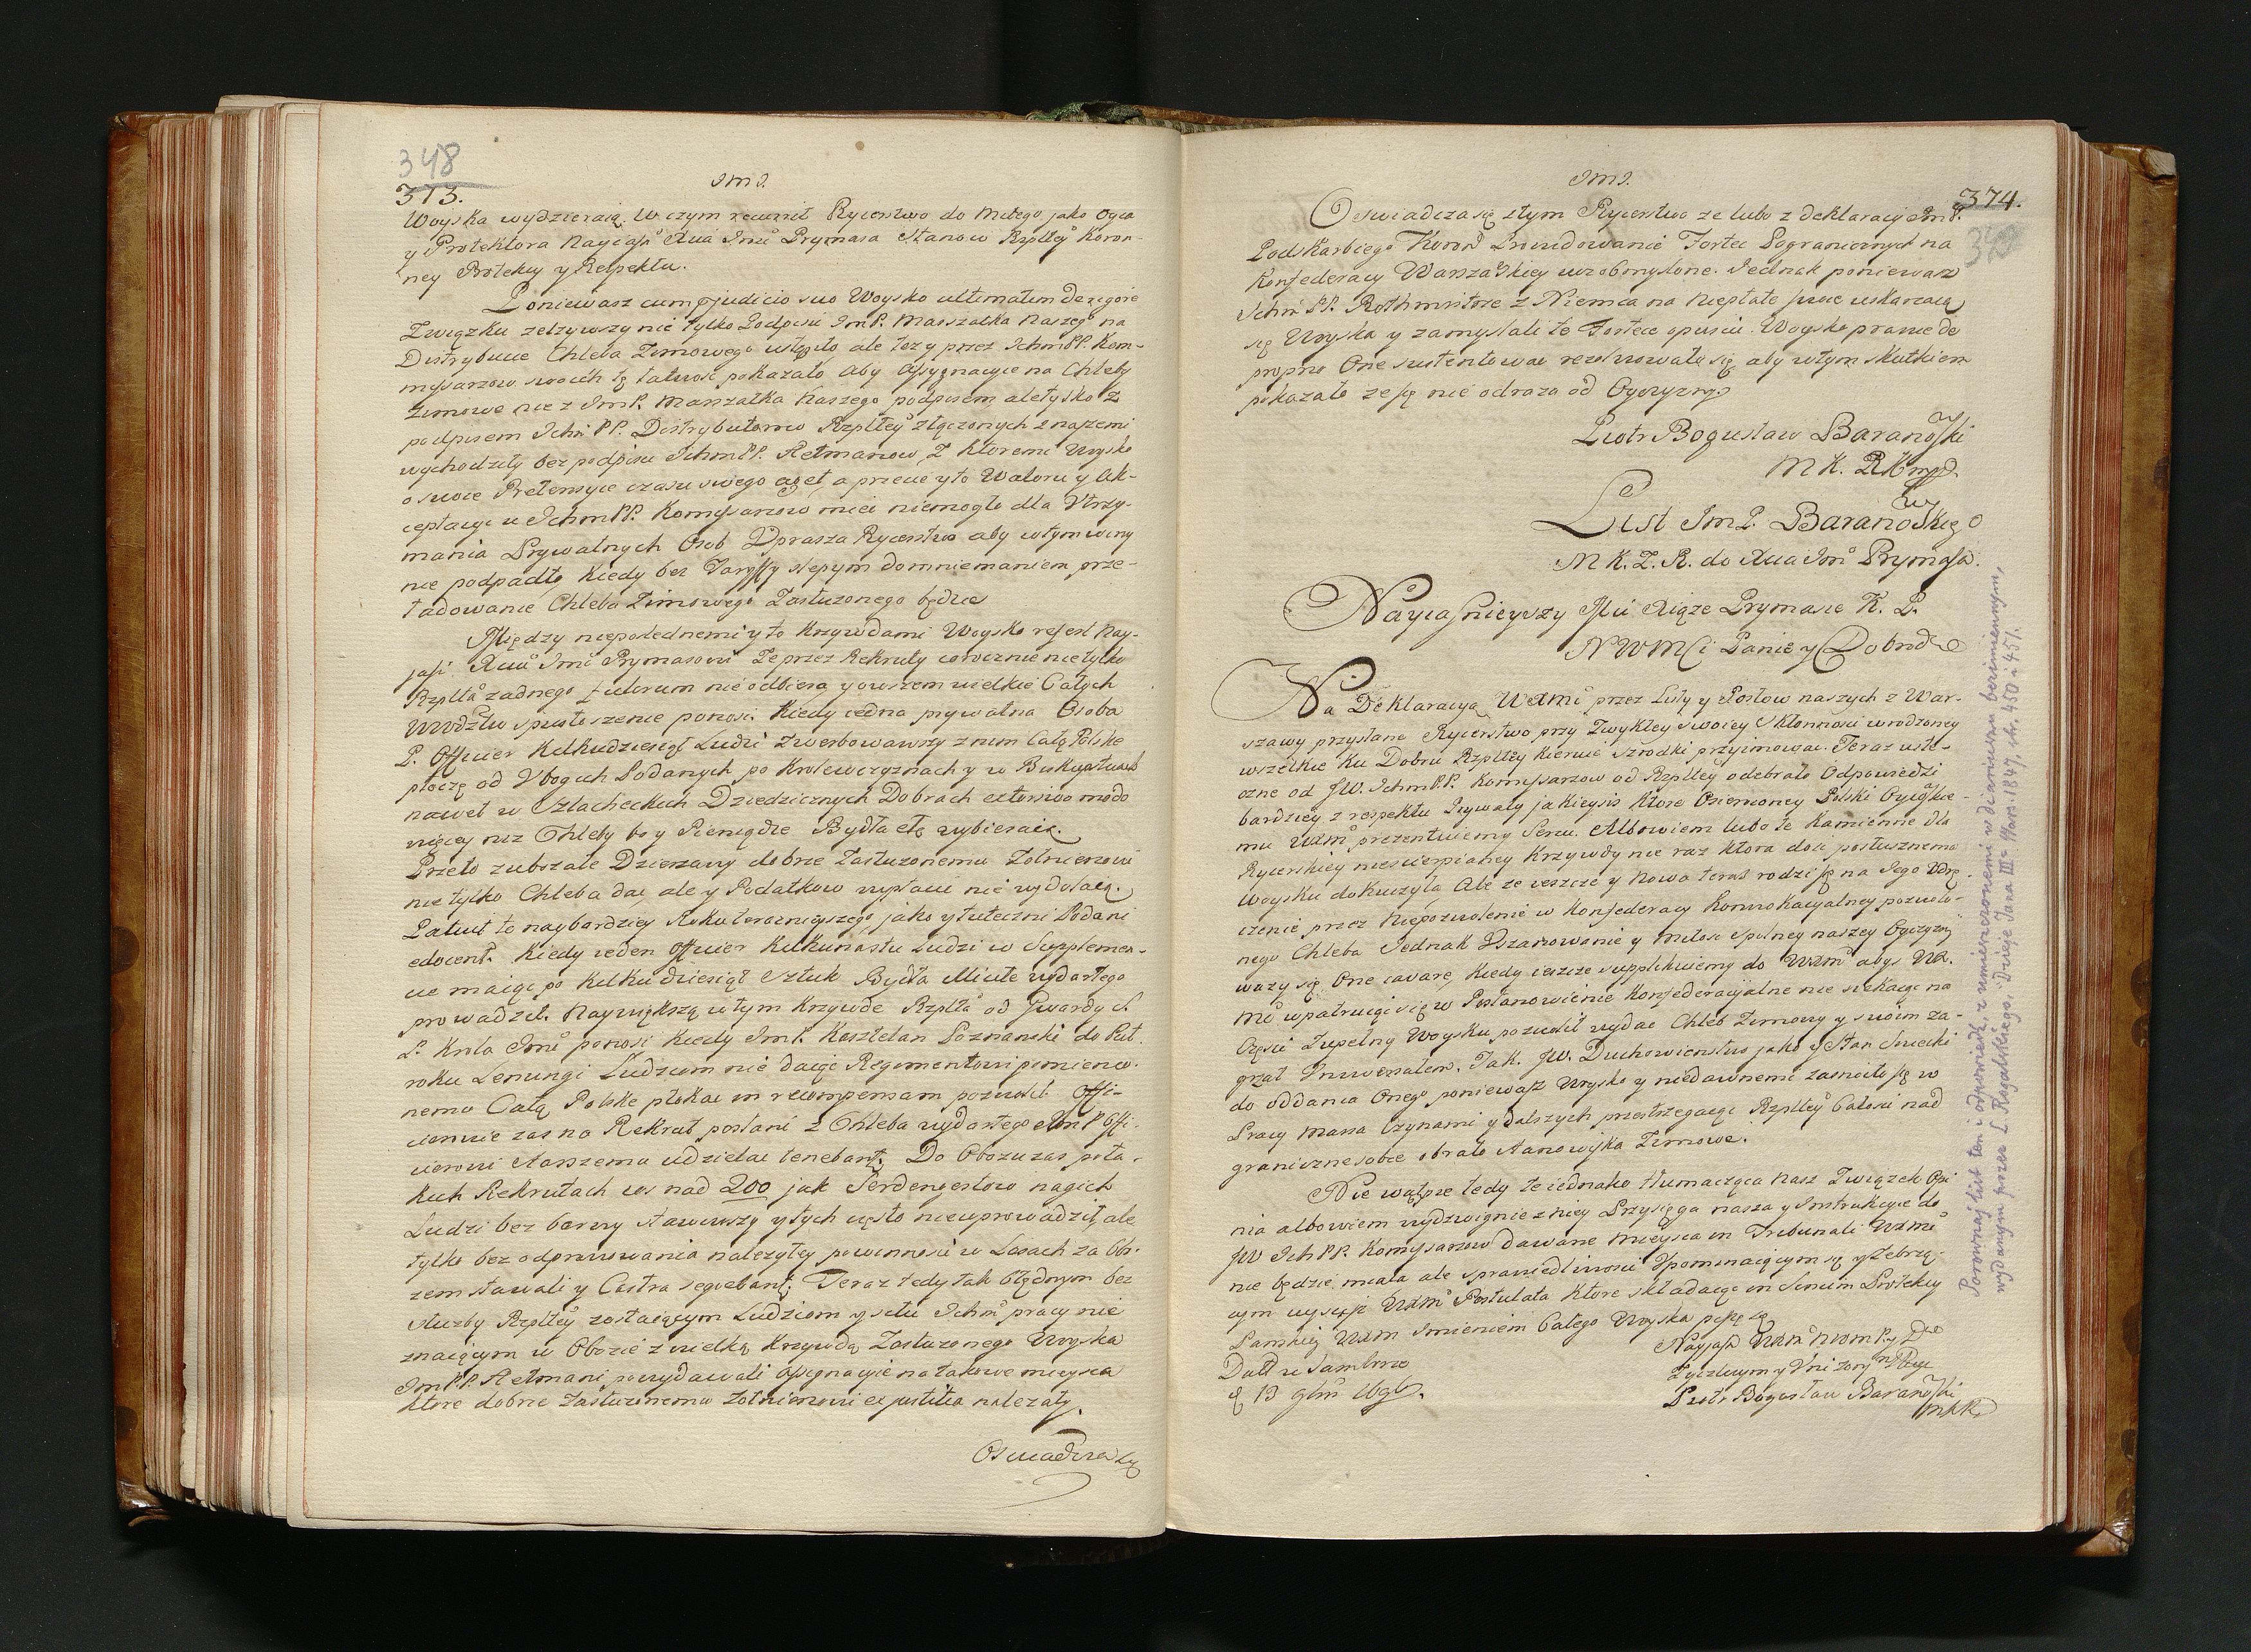 348
373.
JmJ.
Woyska wydzieraią. W czym recurrit Rycerstwo do Miłego jako Oyca
y Protektora Nayiaśń Xcia Jmci Prymasa Stanow Rzpltey Koron
ney Protekcy y Respektu.
Poniewasz cum judicio suo Woysko ultimatim de rigore
Związku zelżywszy nie tylko Podpisu Jm P. Marszałka Naszego na
Distrybucie Chleba Zimowego ustąpiło, ale też y przez Ichm PP. Kom-
myssarzow swoich tę łatwość pokazało aby assygnacyie na Chleby
Zimowe nie z Jm P. Marszałka Naszego podpisem, ale tylko z
podpisem Ichm PP. Distrybutorow Rzpltey złączonych z naszemi
wychodziły bez podpisu Ichm PP. Hetmanow, z ktoremi Woysko
o swoie Pretensyie czasu swego aget, a przecie y to Waloru y ak-
ceptacyi u Ichm PP. Komyssarzow mieć niemogło dla Vtrzy-
mania Prywatnych Osob Uprasza Rycerstwo aby w tym winy
nie podpadło kiedy bez Taryffy slepym domniemaniem prze-
ładowanie Chleba Zimowego Zasłużonego będzie
Między nieposlednemi y to krzywdami Woysko refert Nay-
jaśń Xciu Jmci Prymasowi że przez Rekruty corocznie nie tylko
Rzplta żadnego fulcrum nie odbiera y owszem wielkie Całych
Wwdztw spustoszenie ponosi. Kiedy iedna prywatna Osoba
P. Officier kilkudziesiąt Ludzi zwerbowawszy z nim Całą Polskę
płoczą od Vbogich Podanych po Krolewszyznach y w Biskupstwach
nawet w Szlacheckich Dziedzicznych Dobrach extorsivo modo
więcey niż Chleby bo y Pieniądze Bydła etc wybieraią.
Przeto zubożałe Dzierżawy dobrze Zasłużonemu Żołnierzowi
nie tylko Chleba dać, ale y Podatkow wypłacić nie wydołaią.
Patuit to naybardziey Roku teraznieyszego, jako y tuteczni Podani
edocent. Kiedy ieden Officier kilkunastu Ludzi w Supplemen-
cie maiąc po kilkudziesiąt sztuk Bydła Micite wydartego
prowadził. Naywiększą w tym krzywdę Rzplta od Gwardyi S.
P. Krola Jmci ponosi kiedy Jm P. Kasztelan Poznanski do Puł
roku Lenungi Ludziom nie daiąc Regimentowi pomienio-
nemu Całą Polskę płokać in recompensam pozwolił. Offi-
cierowie zas na Rekrut posłani z Chleba wydartego Jm P Offi-
cierowi Starszemu udzielać tenebantr. Do Obozu zas po ta-
kich Rekrutach cos nad 200 jak Serdengestow nagich
Ludzi bez barwy stawiwszy y tych często nieuprowadził, ale
tylko bez odprawowania należytey powinności w Lasach za Obo-
zem stawali y Castra sequebantr. Teraz tedy tak błędnym bez
służby Rzpltey zostaiącym Ludziom y setu Ichm pracy nie
znaiącym w Obozie z wielką krzywdą Zasłużonego Woyska
Jm PP. Hetmani powydawali Assignacyie na takowe mieysca
ktore dobrze Zasłużonemu Żołnierzowi ex justitia należały.
Oswiadcza się
JmJ.
374.
Oświadcza się z tym Rycerstwo że lubo z deklaracyi Jm P.
Podskarbiego Koron Prowidowanie Fortec Pogranicznych na
Konfederacy Warszawskiey uzobmyslone. Jednak poniewasz
Ichm PP. Rothmistrze z Niemca na niepłatę swoie uskarżaią
się Woyska y zamyslali te Fortece opuscić. Woysko prawie de
proprio One sustentować rezolwowało się, aby w tym skutkiem
pokazało że się nie odraża od Oyczyzny
Piotr Bogusław Baranowski
M K. Z. R mpp.
List Jm P. Baranowskiego
M K. Z. R. do Xcia Jm Prymasa.
Nayiaśnieyszy Mci Xiąże Prymasie K. P.
N W M Ci Panie y Dobrdzo
Na Deklaracyą WXMci przez Listy y Posłow naszych z War-
szawy przysłane Rycerstwo przy Zwykłey swoiey skłonności wrodzoney
wszelkie ku Dobru Rzpltey kieruie szrodki przyimować. Teraz uste-
czne od JW. Ichm PP. Komyssarzow od Rzpltey odebrało Odpowiedzi
bardziey z respektu Prywaty jakieysis ktore Osieroconey Polski Oycowskie-
mu WXM prezentuiemy Sercu. Albowiem lubo te kamienne dla
Rycerskiey niescierpianey krzywdy nie raz ktora dosć posłusznemu
woysku dokuczyła, Ale że ieszcze y Nowa teraz rodzi się na Jego Udrę-
czenie przez Niepozwolenie w Konfederacy Konwokacyalney pozwolo-
nego Chleba Jednak Uszanowanie y Miłosć spolney naszey Oyczyzny
waży się One cavare, kiedy ieszcze supplikuiemy do WXM abys WX.
Mć wpatruiąc się w Postanowienie Konfederacyialne nie szukaiąc na
Części Zupełny Woysku pozwolił wydać Chleb Zimowy y swoim za-
grzał Inwersałem. Tak. JW. Duchowieństwo jako y Stan Swiecki
do oddania Onego ponieważ Woysko y niedawnemi zaszciło się w
Pracy Marsa Czynami y dalszych przestrzegaiąc Rzpltey Całosci nad
graniczne sobie obrało Stanowiska Zimowe.
Nie wątpie tedy że iednako tłumacząca nasz Związek Opi
nia albowiem wydzwignie z niey Przysięga nasza y Instrukcyie do
JW Ich PP. Komysarzow dawane mieysca in Tribunali WXMci
nie będzie miała ale sprawiedliwosci Upominaiącym się y Żebrzą-
cym uysc WXM Postulata ktore składaiąc in Sinum Protekcy
Panskiey WXM Imieniem Całego Woyska piszę się
Nayjaśń WXM N W M P y Dro
Życzliwym y Uniżonym Sługą
Piotr Bogusław Baranowski
mkR
Datt w Samborze
d 13 9bris 1696.
Porównaj list ten i odpowiedź, z umieszczonemi w diariuszu bezimiennym,
wydanym przez L. Rogalskiego, Dzieje Jana IIIo Wars: 1847, str. 450 i 451.